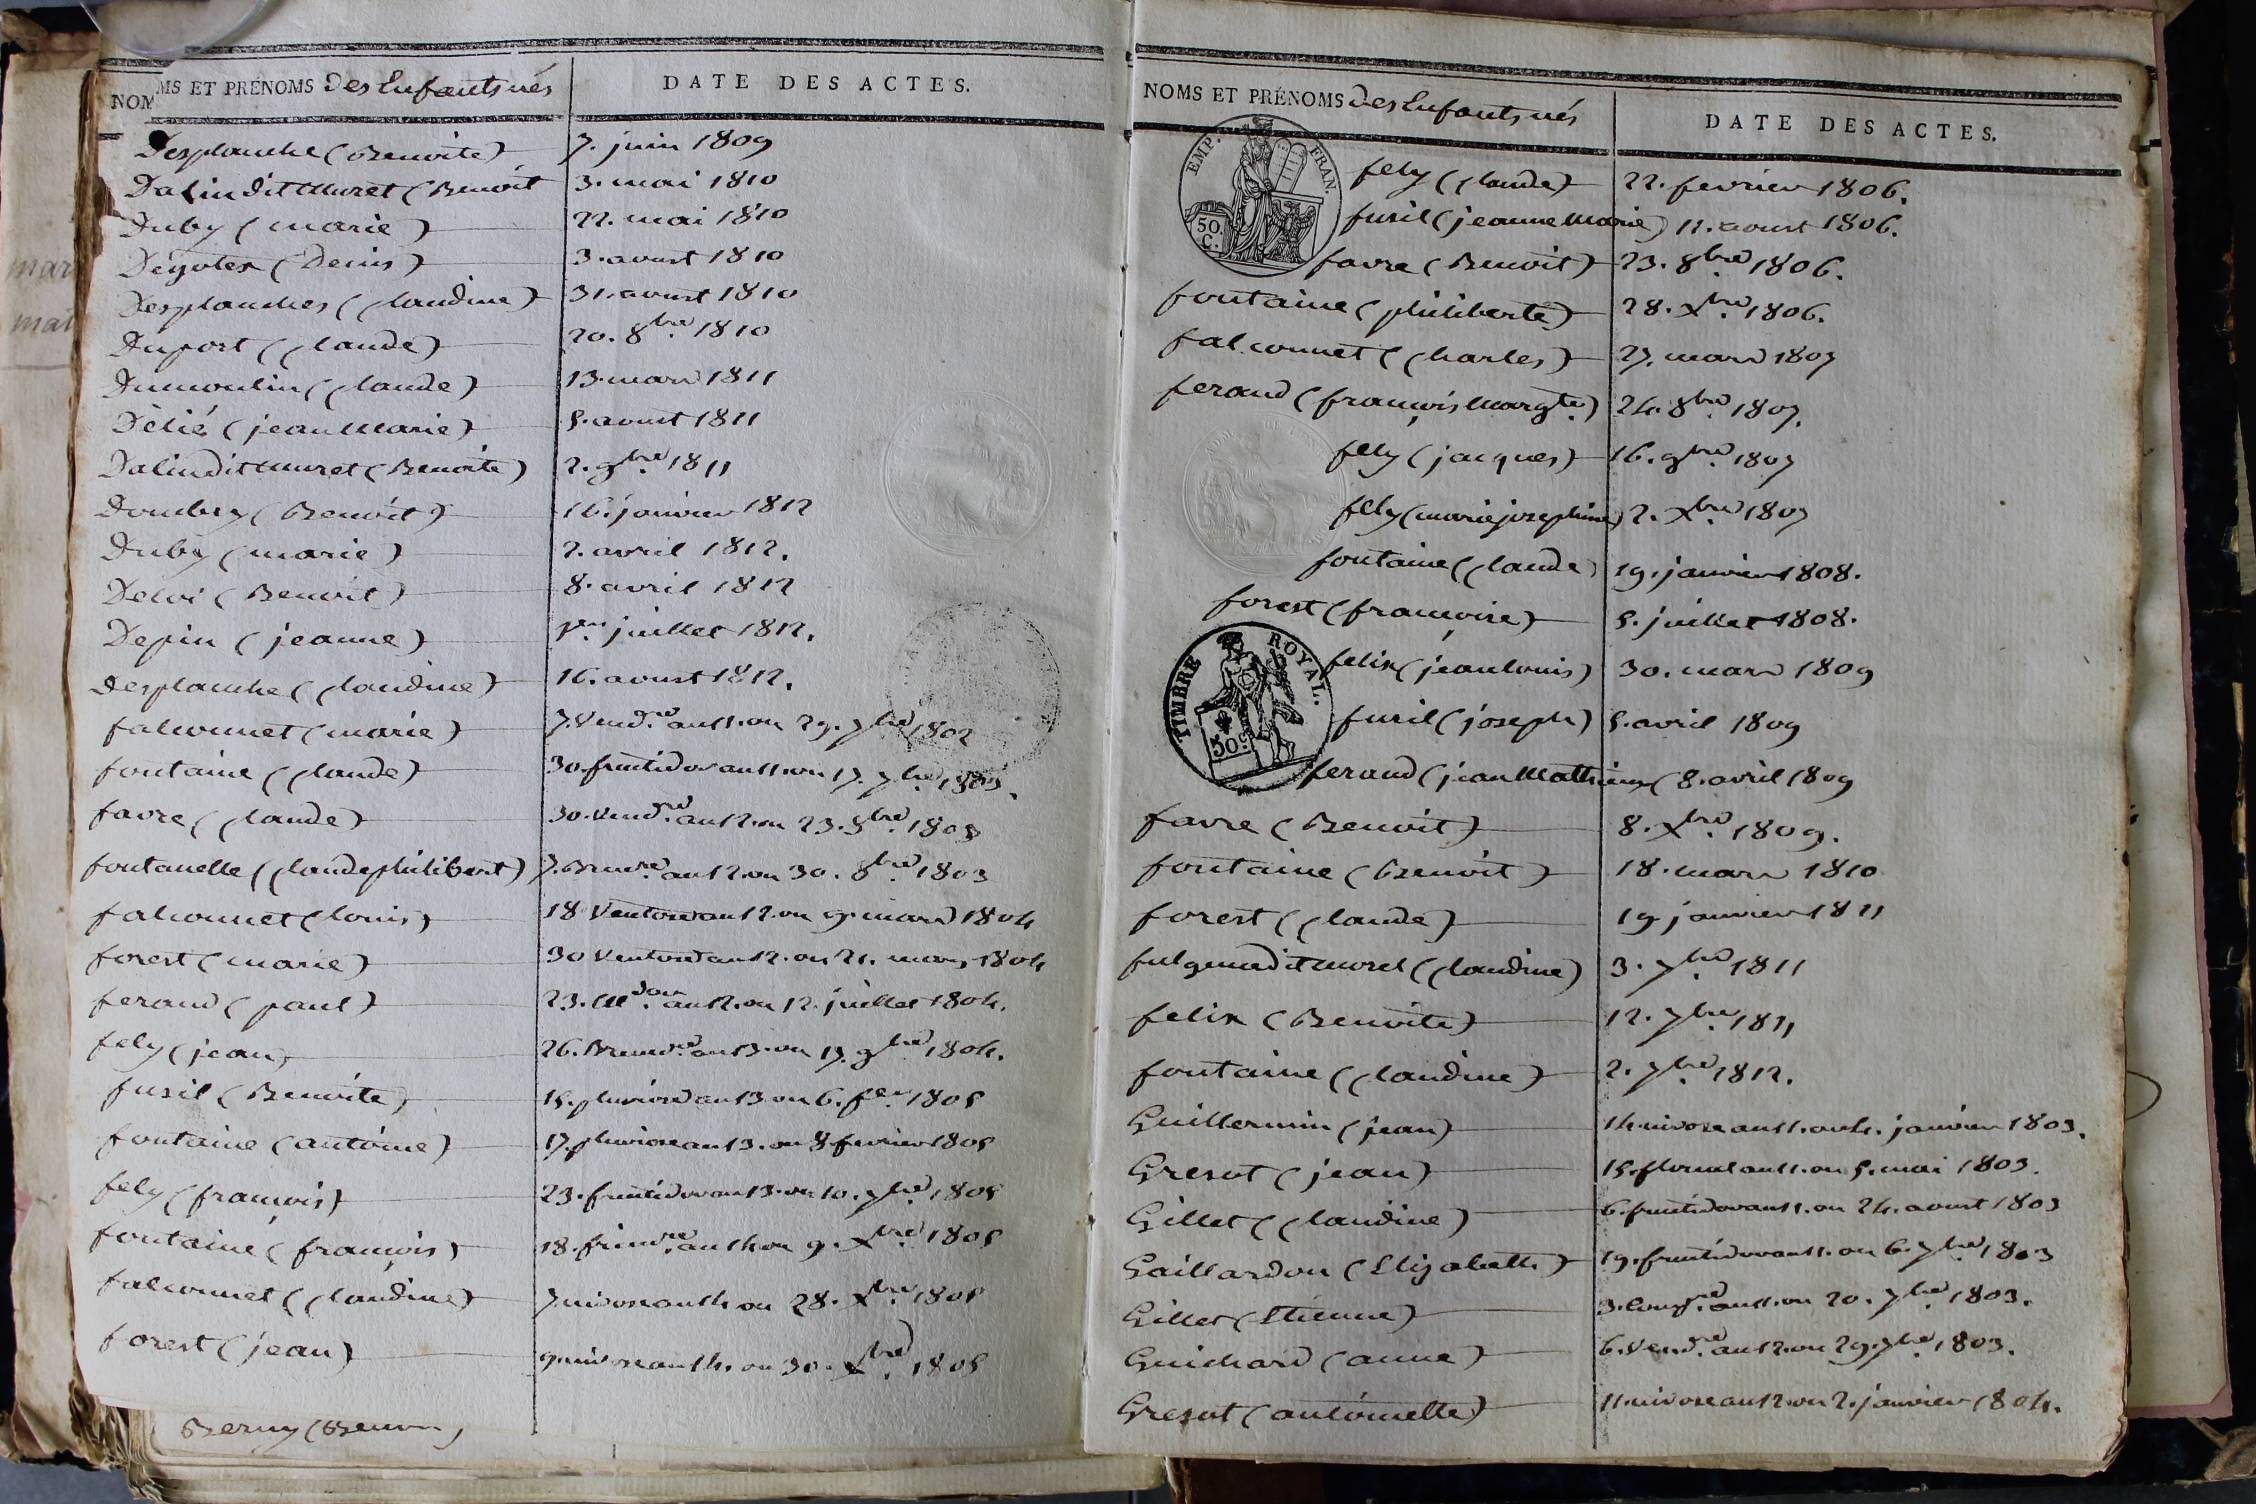 NOMS ET PRÉNOMS Des Enfants nés
DATE DES ACTES.
Desplanche (Benoite) 7. juin 1809
Dalin dit Muret (Benoit 3. mai 1810
Duby (marie) 22. mai 1810
Degoter (Denis) 3. aoust 1810
Desplanches (Claudine) 31. aoust 1810
Duport (Claude) 20. 8bre 1810
Dumoulin (Claude) 13. mars 1811
Délié (jean Marie) 5. aoust 1811
Dalin dit Muret (Benoite) 2. 9bre 1811
Dombey (Benoit) 16. janvier 1812
Duby (marie) 2. avril 1812.
(Benoit) 8. avril 1812
Depin (jeanne) 1er juillet 1812.
Desplanche (Claudine) 16. aoust 1812.
falconnet (marie) 7. Vendre an 11. ou 29. 7bre 1802
fontaine (Claude) 30. fructidor an 11 ou 17. 7bre 1803.
favre (Claude) 30. Vendre an 12. ou 23. 8bre 1803
fontanelle (Claude philibert) 7. Brure an 12. ou 30. 8bre 1803
falconnet (louis) 18 Ventose an 12. ou 9. mars 1804
forest (marie) 30 Ventose an 12. ou 21. mars 1804
feraud (paul) 23. Mdor an 12. ou 12. juillet 1804.
fely (jean) 26. Brumre an 13. ou 17. 9bre 1804.
fusil (Benoite) 15. pluviose an 13 ou 6. fer 1805
fontaine (antoine) 17. pluviose an 13. ou 8 fevrier 1805
fely (françois) 23. fructidor an 13. ou 10. 7bre 1805
fontaine (françois) 18. frimre an 14 ou 9. Xbre 1805
falconnet (Claudine) 7. nivose an 14 ou 28. Xbre 1805
forest (jean) 9. nivose an 14. ou 30. Xbre 1805
NOMS ET PRÉNOMS Des Enfants nés
DATE DES ACTES.
EMP. FRAN.
50. C.
fely (Claude) 22. fevrier 1806.
fusil (jeanne Marie) 11. aoust 1806.
favre (Benoit) 23. 8bre 1806.
fontaine (philiberte) 28. Xbre 1806.
falconnet (Charles) 27. mars 1807
feraud (françois Margte) 24. 8bre 1807.
fely (jacques) 16. 9bre 1807
fely (marie josephine) 2. Xbre 1807
fontaine (Claude) 19. janvier 1808.
forest (françoise) 5. juillet 1808.
TIMBRE ROYAL.
50c
felix (jean louis) 30. mars 1809
fusil (joseph) 5. avril 1809
feraud (jean Mathieu) 8. avril 1809
favre (Benoit) 8. Xbre 1809.
fontaine (Benoit) 18. mars 1810
forest (Claude) 19 janvier 1811
dit muret (Claudine) 3. 7bre 1811
felix (Benoite) 12. 7bre 1811
fontaine (Claudine) 2. 7bre 1812.
Guillermin (jean) 14. nivose an 11. ou 4. janvier 1803.
Gresot (jean) 15. floreal an 11. ou 5. mai 1803.
Gillet (Claudine) 6. fructidor an 11. ou 24. aoust 1803
Gaillardon (Elizabeth) 19. fructidor an 11. ou 6. 7bre 1803
Gillet (Etienne) 3. Compre an 11. ou 20. 7bre 1803.
Guichard (anne) 6. Vendre an 12. ou 29. 7bre 1803.
Gresot (antoinette) 11. nivose an 12. ou 2. janvier 1804.